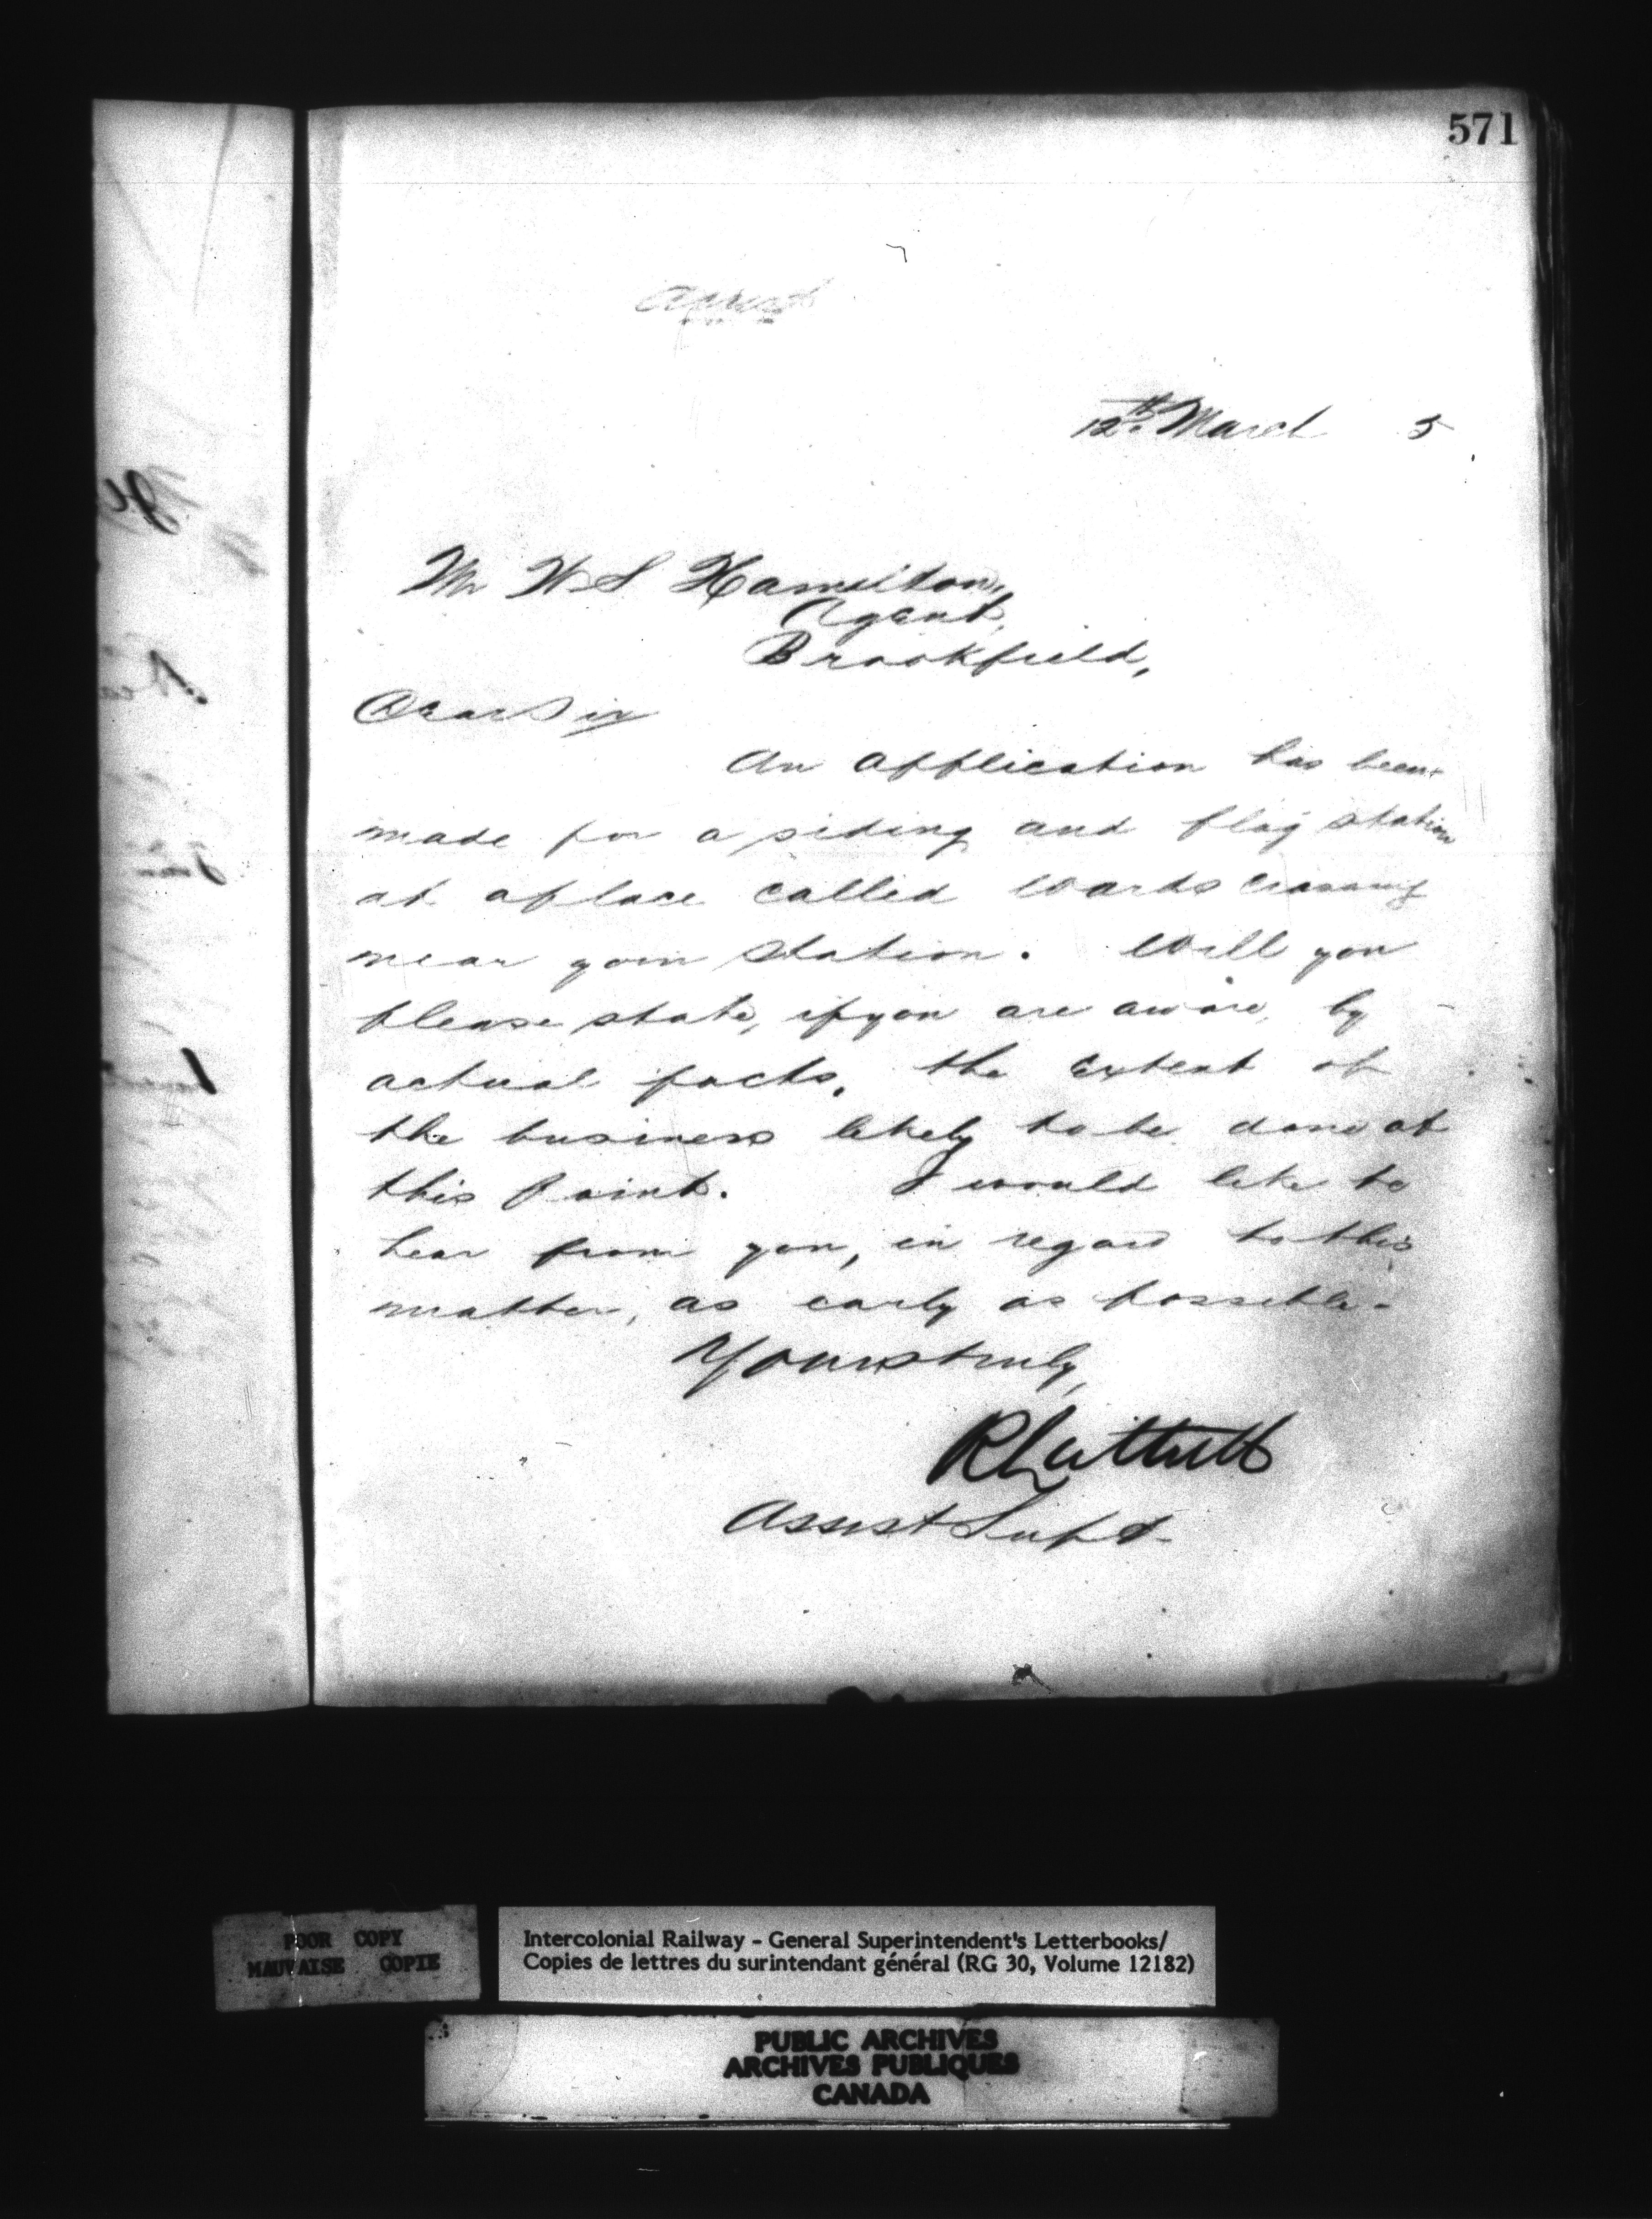 571
12th March 5
Mr W S Hamilton,
Agent,
Brookfield,
Dear Sir
An application has been
made for a siding and flag station
at a place called Wards Crossing
near your Station. Will you
please state, if you are aware, by
actual facts, the extent of
the business likely to be done at
this Point. I would like to
hear from you, in regard to this
matter, as early as possible.
Yours truly,
R Luttrell
Assist Supt
POOR COPY
MAUVAISE COPIE
Intercolonial Railway - General Superintendent's Letterbooks/
Copies de lettres du surintendant général (RG 30, Volume 12182)
PUBLIC ARCHIVES
ARCHIVES PUBLIQUES
CANADA